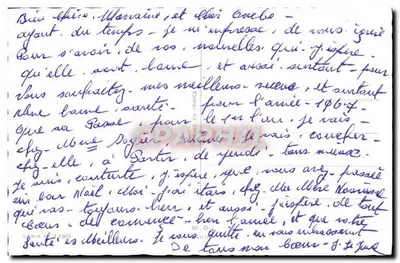 Bien chère Marraine, et
ayant du temps - je m'empresse, de vous
pour s'avoir, de vos, nouvelles, que, j'espère
qu'elle sont bonne, et aussi, surtout - pour
vous souhaitez - mes meilleurs voeux, et surtout
une bonne santé - pour l'année - 1967 -
Que sa Passe - pour le 1er Jan, je vais -
chez - Mme je vais - coucher -
chez - elle à Partir, de - tous
Je suis, contente, j'espère, que, vous avez - passée
un bon Noël, Moi - j'ai étais, chez, Mme Mme
qui vas - toujours bien, et aussi - j'espère, de tout
coeur, de commencé - bien l'année, et que votre
santé, es Meilleur. Je vous quitte, en vous embrassant
De tous mon coeur -